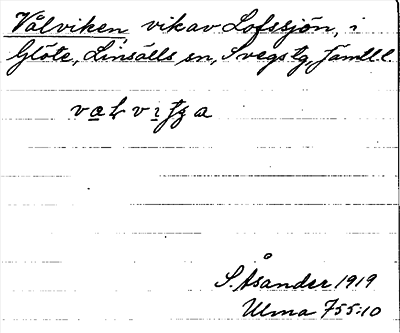 Valviken, vik av Lofssjön, i
Glöte, Linsälls sn, Svegs tg, Jämtl. l.
S. Åsander 1919
Ulma 755:10